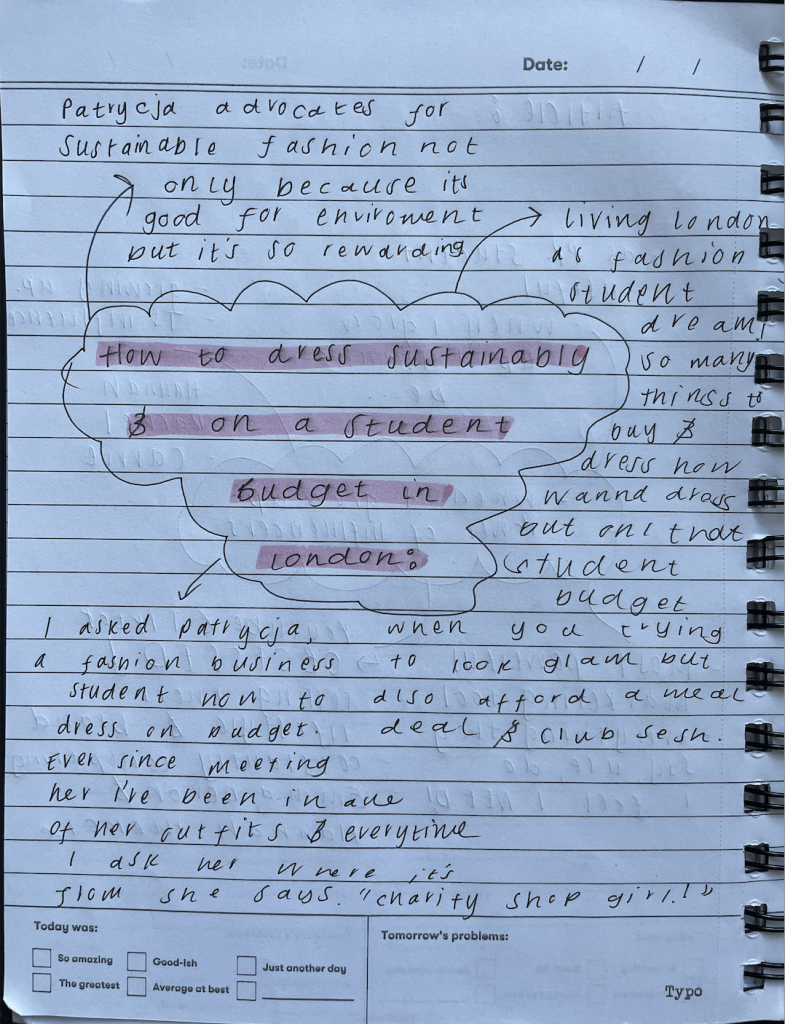 Date: / /
Patrycja advocates for
sustainable fashion not
only because its
good for enviroment
but it's so rewarding
living london
as fashion
student
dream,
so many
things to
buy &
dress how
wanna dress
but on that
student
budget
How to dress sustainably
& on a student
budget in
london:
I asked patrycja,
a fashion business
student how to
dress on budget.
Ever since meeting
her i've been in awe
of her outfits & everytime
I ask her where it's
from she says. "charity shop girl!"
when you trying
to look glam but
also afford a meal
deal & club sesh.
Today was:
So amazing
Good-ish
Just another day
The greatest
Average at best
Tomorrow's problems:
Typo